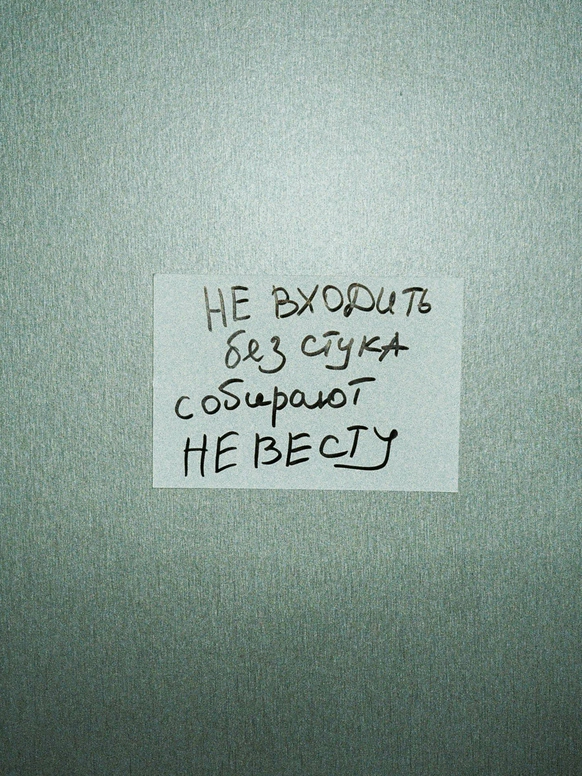 НЕ ВХОДИТЬ
без стука
собирают
НЕВЕСТУ